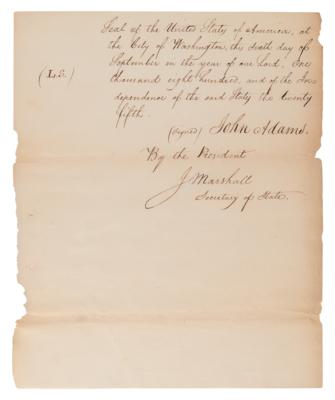 Seal of the United States of America, at
the City of Washington, this sixth day of
September in the year of our Lord. One
(L.S.) thousand eight hundred, and of the In-
dependence of the said States the twenty
fifth.
(signed) John Adams.
By the President
J Marshall
Secretary of State.